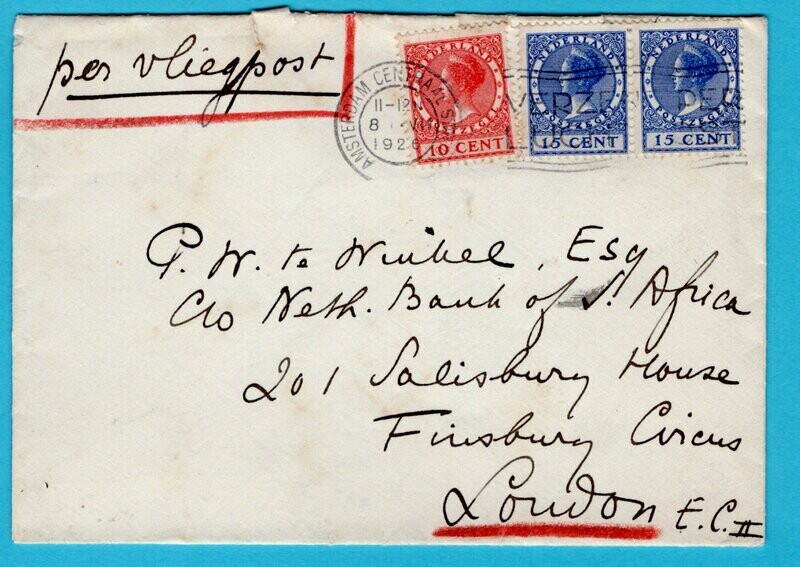 per vliegpost
NEDERLAND
POSTZEGEL
10 CENT
NEDERLAND
POSTZEGEL
15 CENT
NEDERLAND
POSTZEGEL
15 CENT
AMSTERDAM CENTRAAL ST
11-12
8
192
P. W. te Winkel, Esq
C/o Neth. Bank of S. Africa
201 Salisbury House
Finsbury Circus
London E.C. II